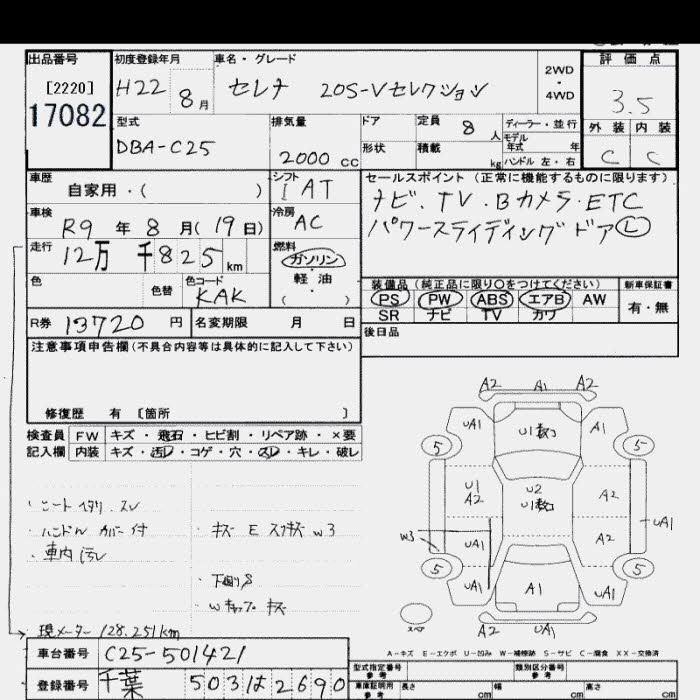 出品番号
[2220]
17082
初度登録年月
H22 8月
車名・グレード
セレナ 20S-Vセレクション
2WD
・
4WD
評価点
3.5
外装 内装
C C
型式
DBA-C25
排気量
2000 cc
ドア
定員 8 人
形状
積載 kg
ディーラー・並行
モデル
年式 年
ハンドル 左・右
車歴
自家用・( )
シフト
I AT
車検
R9 年 8 月(19日)
冷房
AC
走行
12万 千825 km
燃料
ガソリン
軽油
( ・ )
色
色替
色コード
KAK
R券 13720 円
名変期限 月 日
セールスポイント(正常に機能するものに限ります)
ナビ、TV・Bカメラ・ETC
パワースライディングドア L
装備品(純正品に限り○をつけてください)
PS PW ABS エアB AW
SR ナビ TV カワ
新車保証書
有・無
後日品
注意事項申告欄(不具合内容等は具体的に記入して下さい)
修復歴 有 〔箇所 〕
検査員 FW キズ・飛石・ヒビ割・リペア跡・×要
記入欄 内装 キズ・汚レ・コゲ・穴・スレ・キレ・破レ
・ハンドル カバー付
・車内 汚レ
・キズ E スリキズ W3
・下廻りS
・Wキャップ キズ
現メーター 128.251km
A2 A1 A2
UA1 U1数コ A1
5 5
U1
A2
U2
U1数コ
A2
UA1
W3
UA1
A2
5 5
UA1 A1 UA1
A2 UA1
A-キズ E-エクボ U-凹み W-補修跡 S-サビ C-腐食 XX-交換済
車台番号 C25-501421
登録番号 千葉 503 は 2690
型式指定番号
参考
類別区分番号
参考
車庫証明用
参考
長さ cm
幅 cm
高さ cm